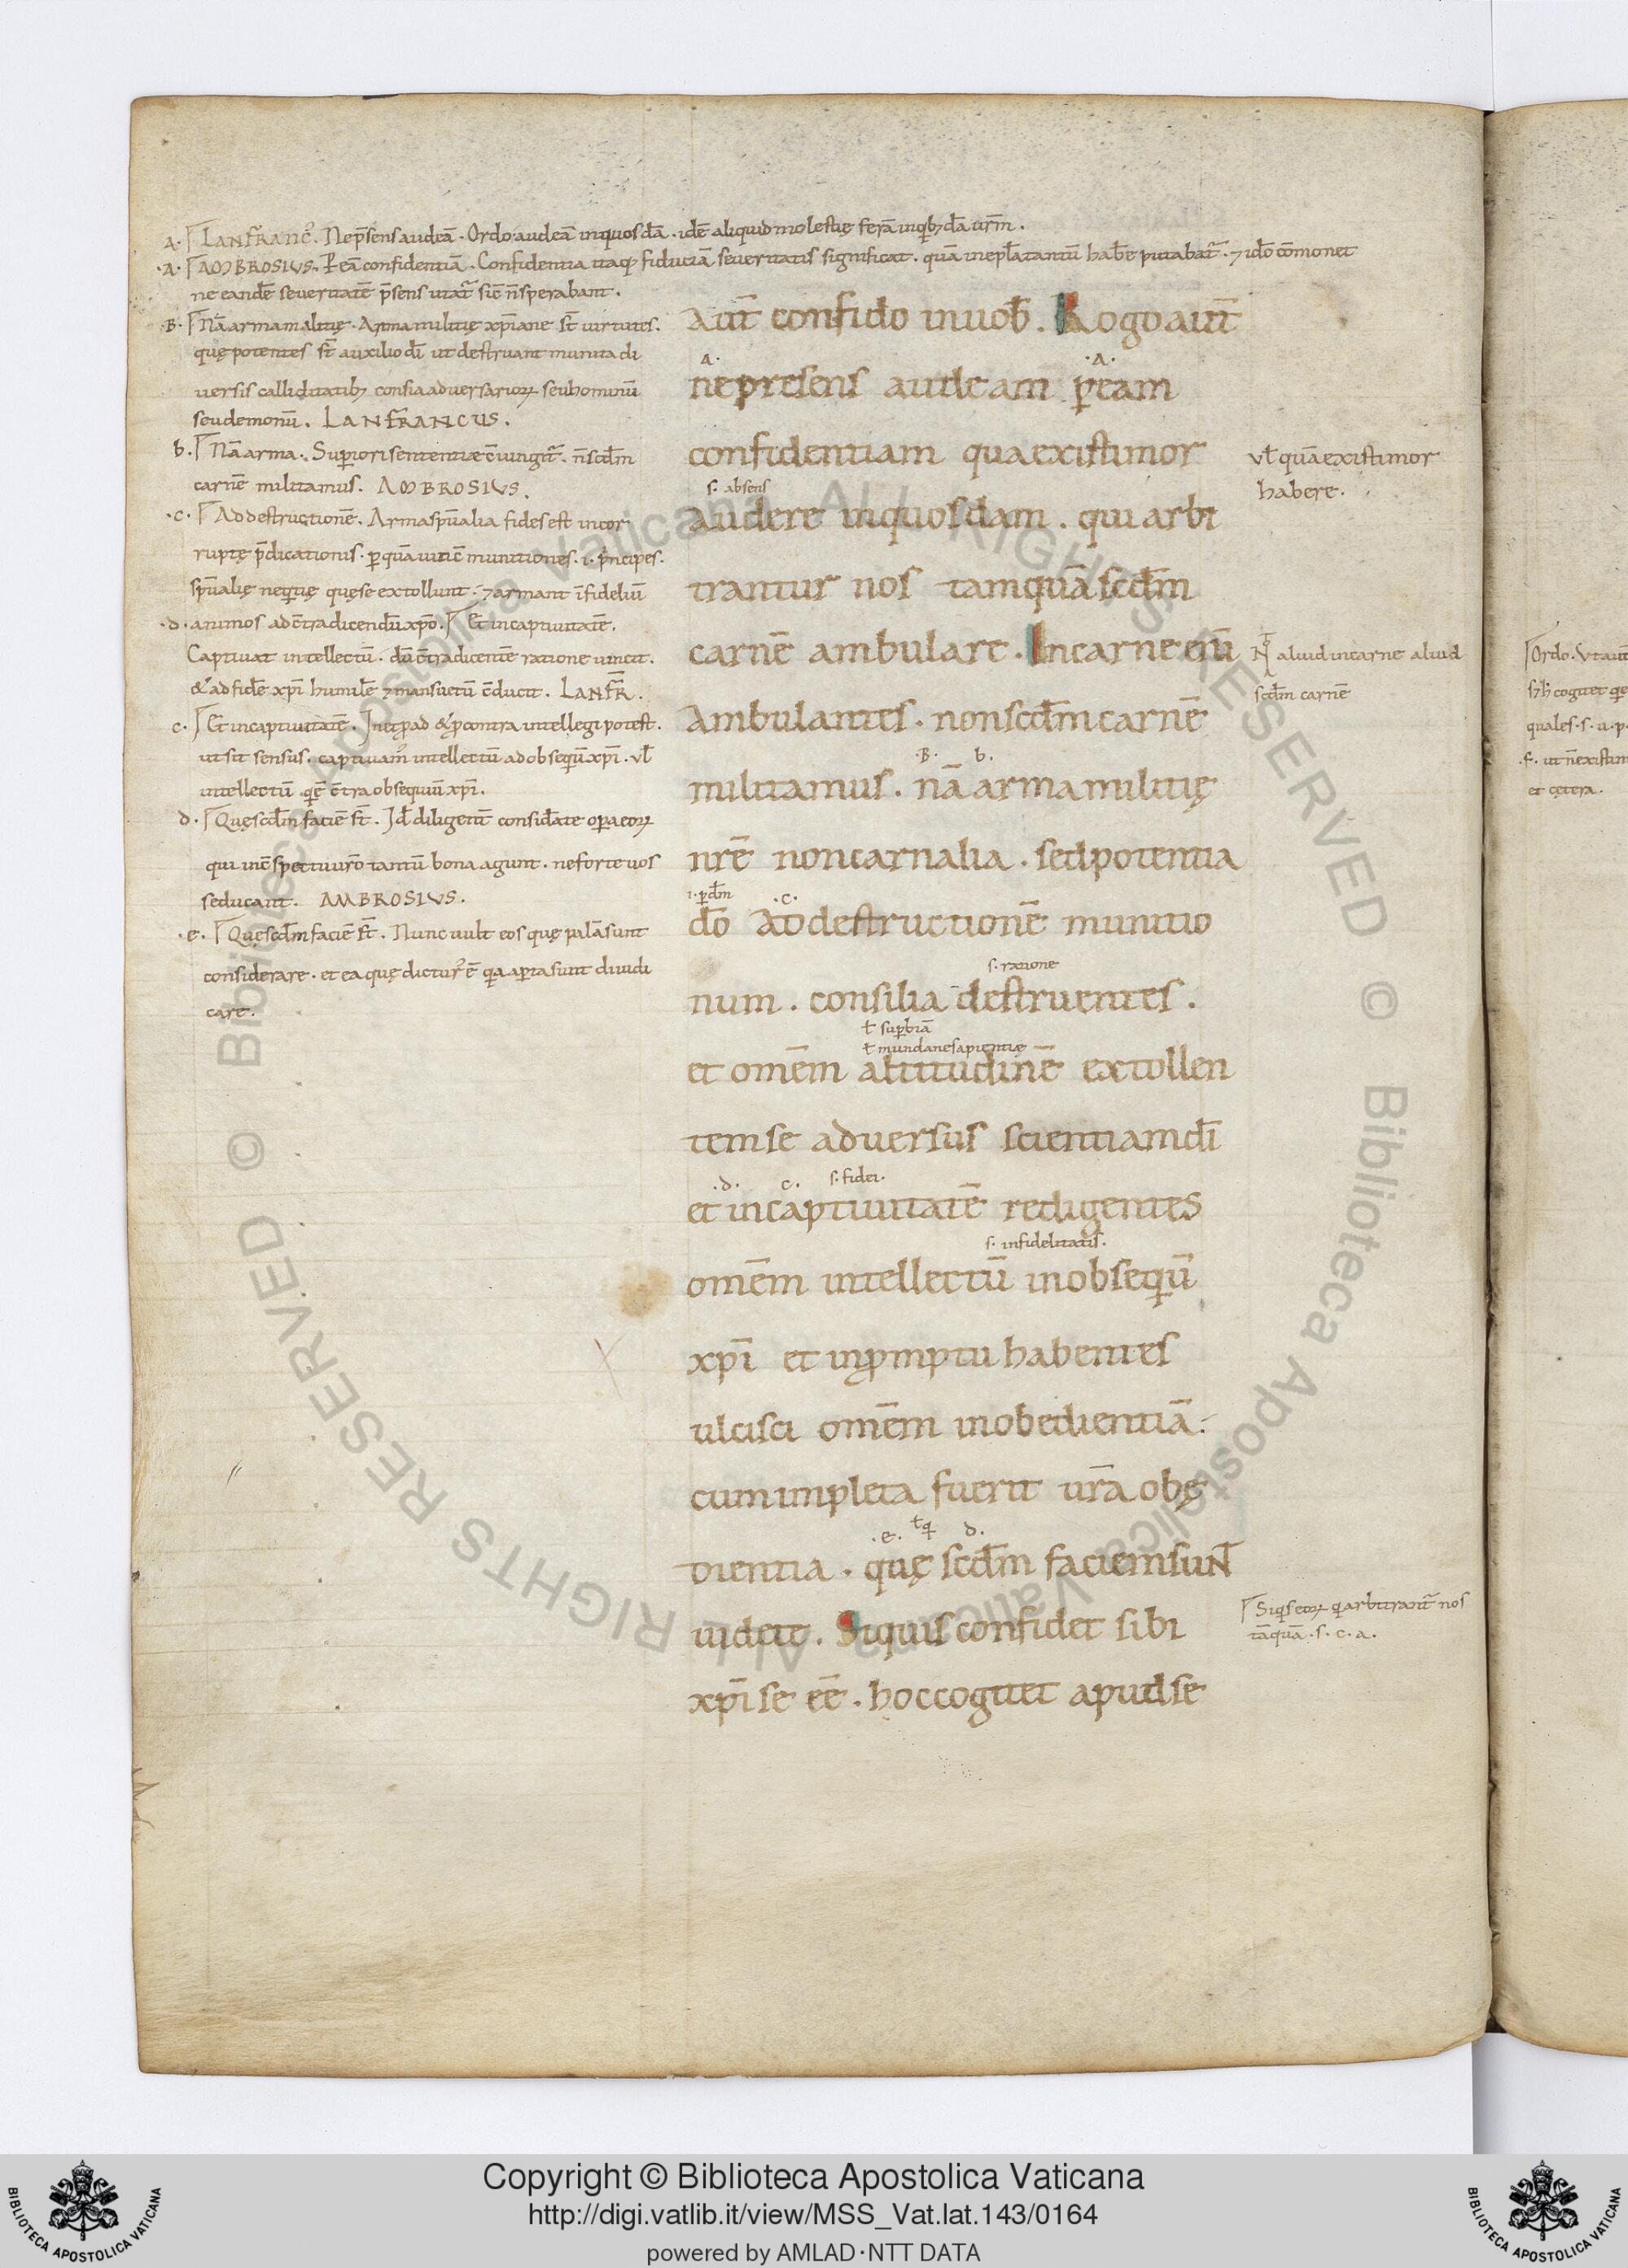 A. LANFRANC᷒. Ne p̄sens audeā. Ordo. audeā in quos dā. idē aliquid molestię ferā in qͥbꝫdā ur̄m.
A. AMBROSIUS. Ꝑ eā confidentiā. Confidentia itaqꝫ fiduciā seueritatis significat. quā in epl̄a tantū hab̄e putabat᷑. ⁊ idō cōmonet
ne eandē seueritatē p̄sens utat᷑ sic̄ n̄ sperabant.
B. Nā arma militię. Arma militię xp̄iane st̄ uirtutes.
quę potentes st̄ auxilio dī ut destruant munita di
uersis calliditatibꝫ consilia aduersarioꝝ seu hominū
seu demonū. LANFRANCUS.
b. Nā arma. Supiori sententiæ c̄iungit᷑. n̄ scd̄m
carnē militamus. AMBROSIUS.
.c. Ad destructionē. Arma sp̄ualia fides est incor
ruptę p̄dicationis. ꝑ quā uincit munitiones. i. pͥncipes.
sp̄ualię neqͥtię quę se extollunt. ⁊ armant īfideliū
.d. animos ad c̄tradicendū xp̄o. Et in captiuitatē.
Captiuat intellectū. dū c̄tradicentē ratione uincit.
& ad fidē xp̄i humilē ⁊ mansuetū c̄ducit. LANFR̄.
c. Et in captiuitatē. In et ꝓ ad & ꝓ contra intellegi potest.
ut sit sensus. captiuam᷒ intellectū ad obseqͥū xp̄i. ul̄
intellectū qͥ ē c̄tra obsequiū xp̄i.
d. Quę scd̄m faciē st̄. Id̄ diligent̄ considᷓate oꝑa eoꝝ
qui in c̄spectu ur̄o tantū bona agunt. ne forte uos
seducant. AMBROSIUS.
.e. Quę scd̄m faciē st̄. Nunc uult eos quę palā sunt
considerare. et ea quę dictur᷒ ē qͥa aꝑta sunt diiudi
care.
Aut̄ confido in uob̄. Rogo aut̄
A. .A.
ne presens audeam ꝑ eam
confidentiam qua existimor
ul̄ quā existimor
habere.
s. absens
audere in quosdam. qui arbi
trantur nos tamquā scd̄m
carnē ambulare. In carne enī
aliud in carne aliud
scd̄m carnē
Ambulantes. non scd̄m carnē
.B. b.
militamus. nā arma militię
nr̄ę non carnalia. sed potentia
i. ꝑ dm̄ .c.
dō Ad destructionē munitio
s. ratione
num. consilia destruentes.
ł supbiā
ł mundane sapientię
et omēm altitudinē extollen
tem se aduersus scientiam dī
.d. c. s. fidei.
et in captiuitatē redigentes
s. infidelitatis.
omēm intellectū in obseqͥū
xp̄i et in ꝓmptu habentes
ulcisci omēm inobedientiā.
cum impleta fuerit ur̄a obę
.e. ł q̄ d.
dientia. quę scd̄m faciem sunt
uidete. Siquis confidet sibi
Siqͥs eoꝝ qͥ arbitrant᷑ nos
tāquā. s. c. a.
xp̄i se eē. hoc cogitet apud se
Ordo. Ut aut̄
quales. s. u. p.
et cętera.
Copyright © Biblioteca Apostolica Vaticana
http://digi.vatlib.it/view/MSS_Vat.lat.143/0164
powered by AMLAD·NTT DATA
BIBLIOTECA APOSTOLICA VATICANA
BIBLIOTECA APOSTOLICA VATICANA
© Biblioteca Apostolica Vaticana ALL RIGHTS RESERVED © Biblioteca Apostolica Vaticana ALL RIGHTS RESERVED